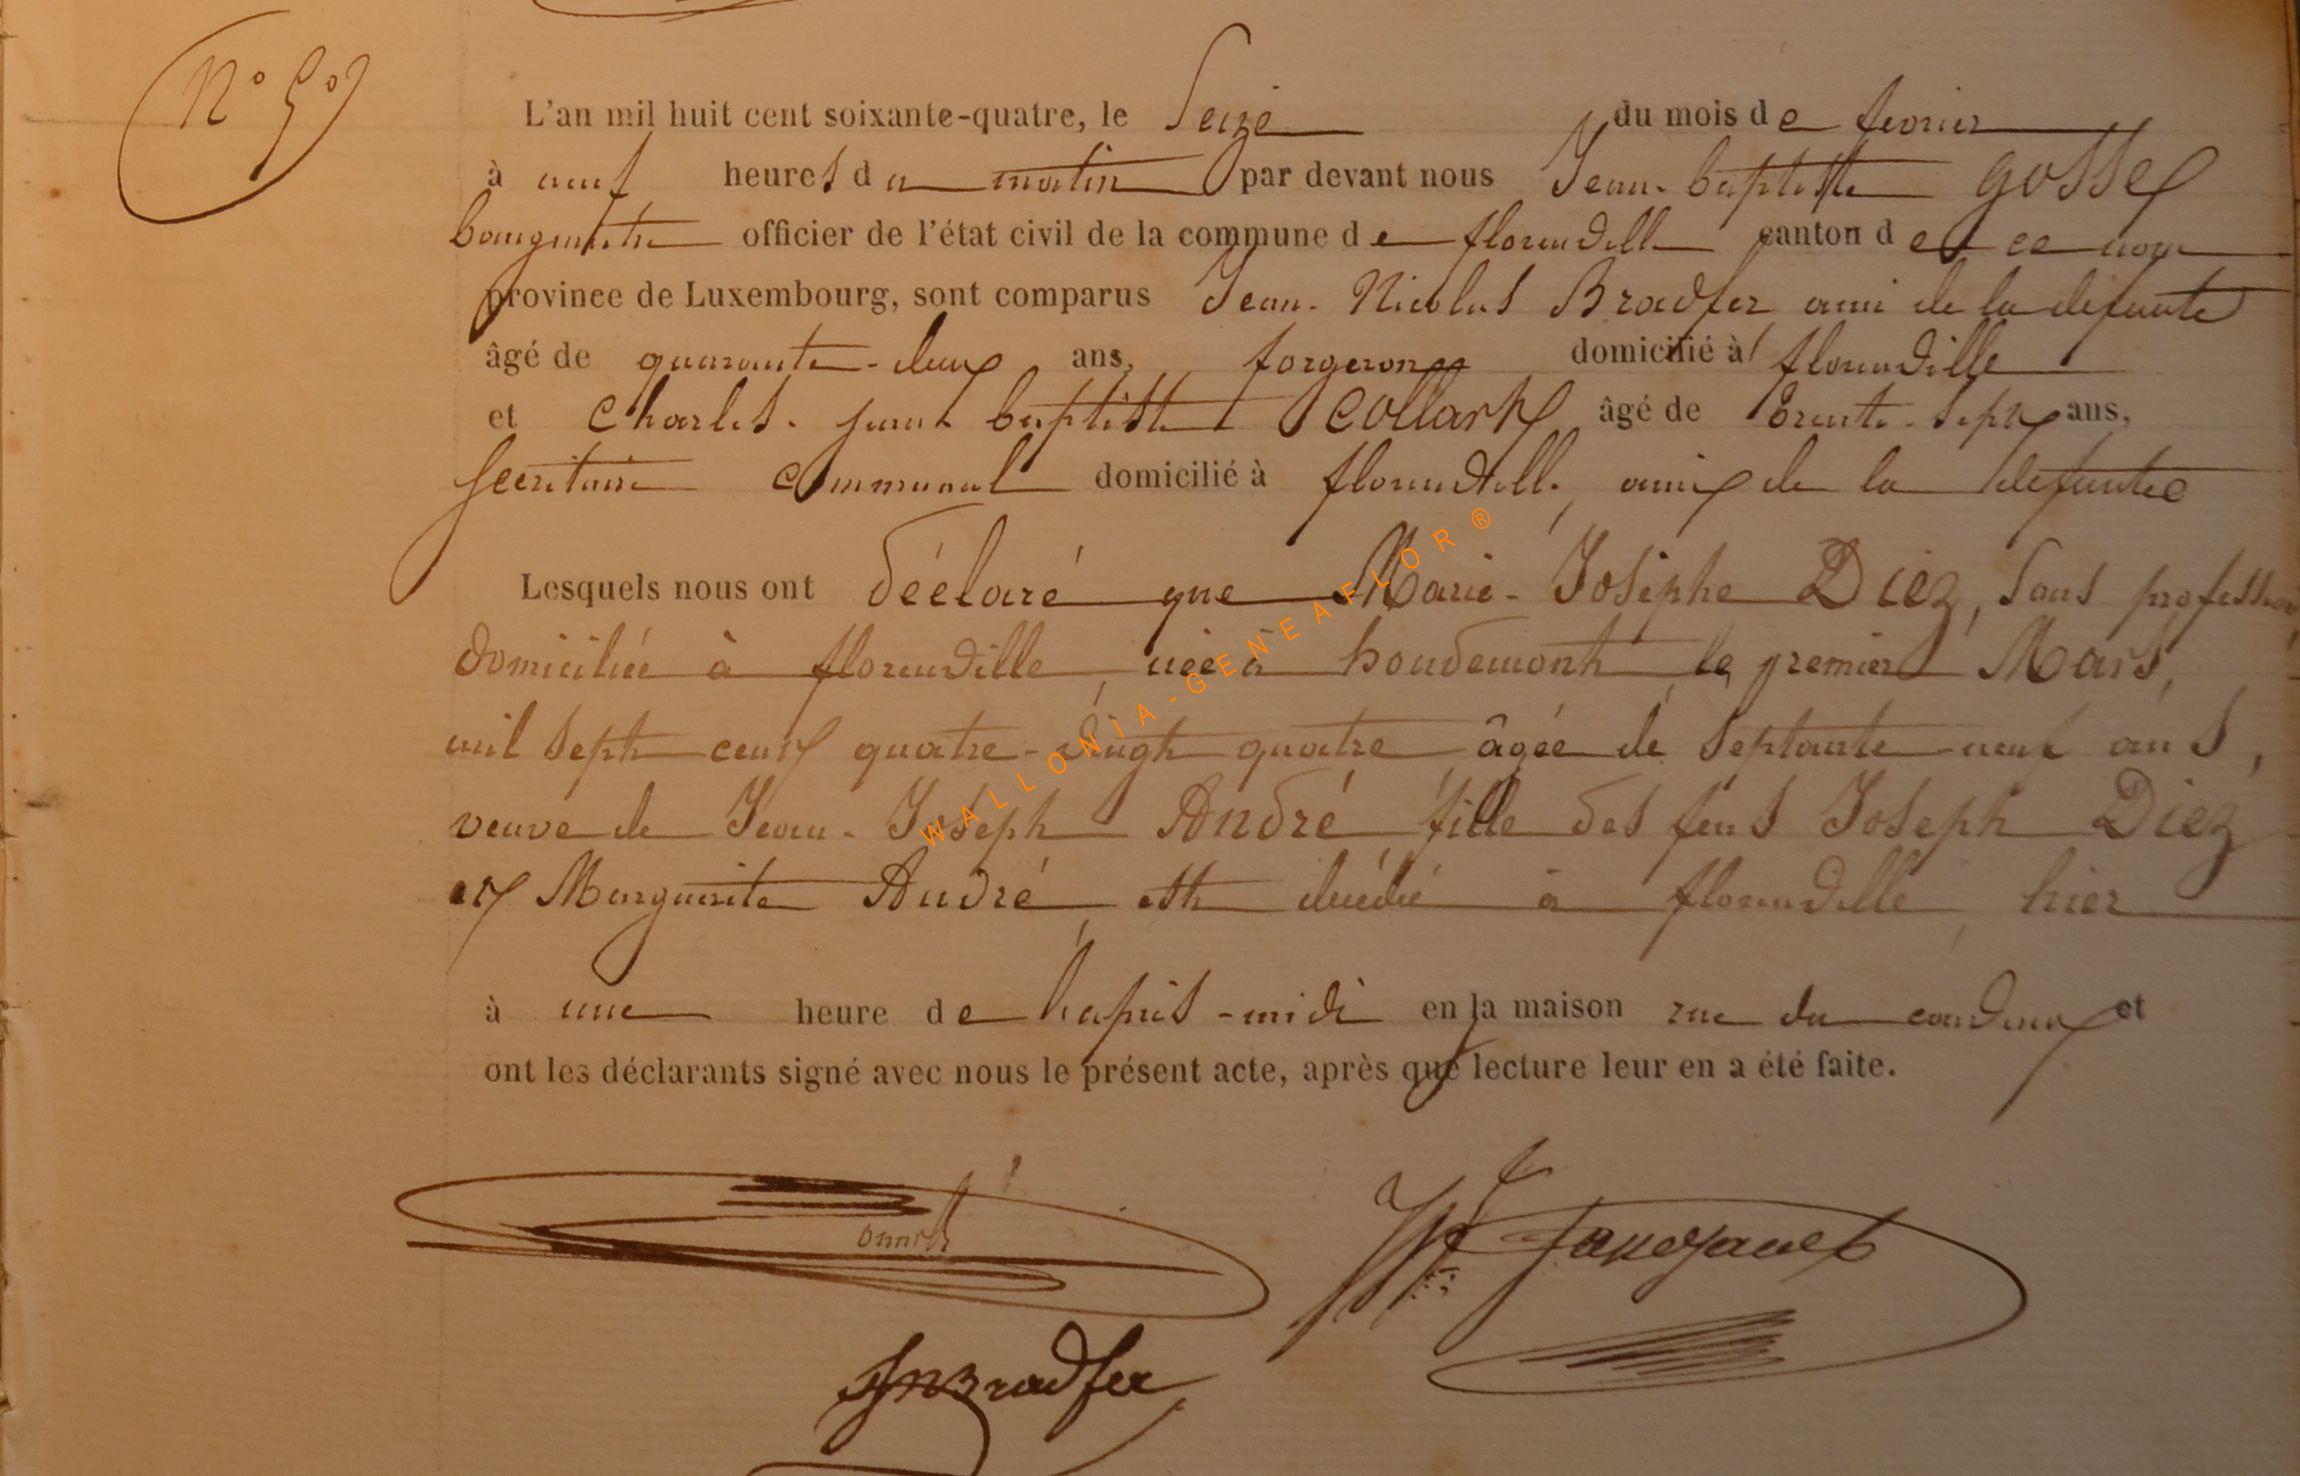 N° 5
L'an mil huit cent soixante-quatre, le Seize du mois de fevrier
à neuf heures du matin par devant nous Jean-baptiste Gosse
bourgmestre officier de l'état civil de la commune de florenville canton de ce nom
province de Luxembourg, sont comparus Jean-Nicolas Bradfer ami de la defunte
âgé de quarante-deux ans, forgeron domicilié à florenville
et Charles-jean baptiste Collart âgé de trente-sept ans,
Secrétaire communal domicilié à florenville, ami de la defunte
Lesquels nous ont déclaré que Marie-Josephe Diez, Sans profession
domiciliée à florenville, née à houdemont le premier Mars,
mil sept cent quatre-vingt quatre, âgée de septante neuf ans,
veuve de Jean-Joseph André, fille des feus Joseph Diez
et Marguerite André, est décédée à florenville, hier
à une heure de l'après-midi en la maison rue du et
ont les déclarants signé avec nous le présent acte, après que lecture leur en a été faite.
JNBradfer
WALLONIA-GENEAFLOR®